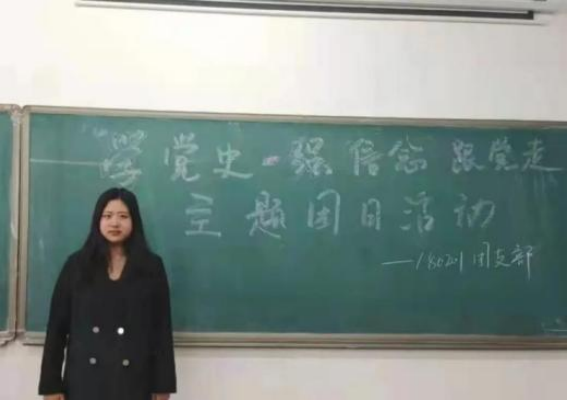 “学党史·强信念 跟党走
主题团日活动
——180201团支部